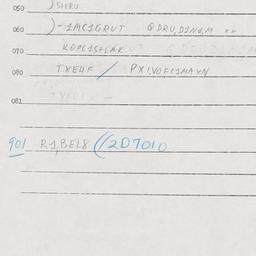 050 )SHRU
060 )-1MC1GRUT QDRU,D1NG,M **
070 KOPE1SFLAK
080 TXE4F / PX1,VOFC1MAXN
081
901 R1,BEL8 (/2D7010